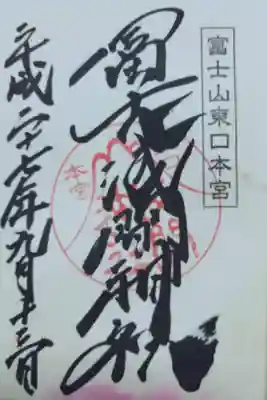 富士山東口本宮
冨士浅間神社
平成二十七年九月十三日
本宮